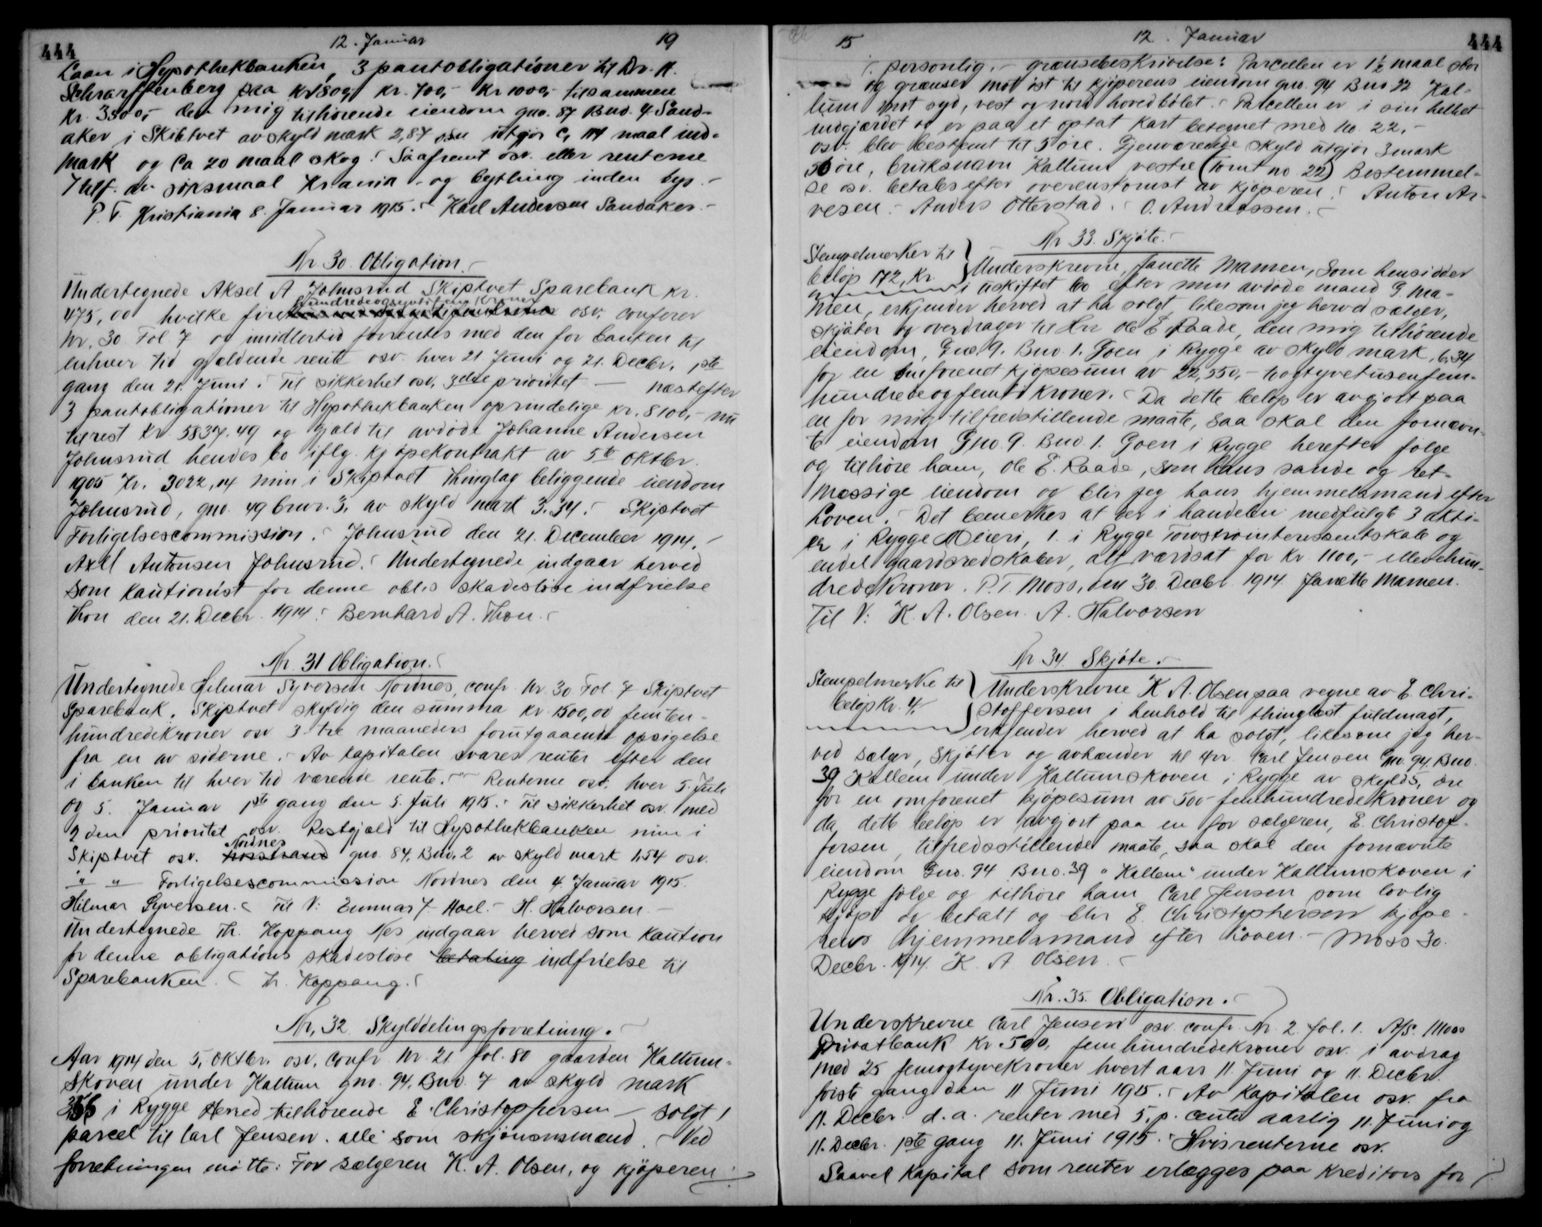 444
12. Januar 19
Laan i Hypothekbanken, 3 pantobligationer til Dr. H.
Scharffenberg paa kr. 1800,- kr. 700,- kr 1000,- tilsammen
kr. 3500,- den mig tilhörende eiendom gno. 87 Bno. 4 Sand-
aker i Skibtvet av skyld mark 2,87 osv. utgjör ca 114 maal ind-
mark og ca 20 maal skog. Saafremt osv. eller renterne
7 Ulf. der sörsmaal Krania - og bythingr inden bys. -
P. T. Kristiania 8. Januar 1915. Karl Andersen Sandaker. -
Nr 30. Obligation.
Undertegnede Aksel A Johnsrud Skiptvet Sparebank kr.
475,00 hvilke fire hundredeogsyttifem Kroner osv. conferer
Nr. 30 Fol 7 og imidlertid forrentes med den for banken til
enhver tid gjældende rente osv. hver 21 Juni og 21. Decbr. 1ste
gang den 21. Juni. Til sikkerhet osv. 3die prioritet - næstefter
3 pantobligationer til Hypothekbanken oprindelige kr. 8100,- nu
tilrest kr. 5837.49 og gjæld til avdöde Johanne Andersen
Johnsrud hendes bo iflg. kjöpekontrakt av 5te Oktbr.
1905 kr. 3022,14 min i Skiptvet thinglag beliggende eiendom
Johnsrud, gno. 49 bnr. 3, av skyld mark 3.34. Skiptvet
Forligelsescommission. Johnsrud den 21. December 1914. -
Axel Antonsen Johnsrud. Undertegnede indgaar herved
som kautionist for denne obl.s skadeslöse indfrielse
Thon den 21. Decbr. 1914. Bernhard A. Thon.
Nr 31 Obligation.
Undertegnede Hilmar Syversen Nordnes, confr Nr. 30 Fol. 7 Skiptvet
Sparebank. Skiptvet skyldig den summa kr. 1500,00 femten-
hundredekroner osv 3 tre maaneders forutgaaende opsigelse
fra en av siderne. - Av kapitalen svares renter efter den
i banken til hver tid værende rente. Renterne osv. hver 5. Juli
og 5. Januar 1ste gang den 5. Juli 1915. Til sikkerhet osv. med
2den prioritet osv. Restgjæld til Hypothekbanken min i
Skiptvet osv. Nordnes gno. 84, Bno. 2 av skyld mark 1,54 osv.
" " Forligelsescommission Nordnes den 4. Januar 1915.
Hilmar Syversen. Til V: Gunnar J. Moel. - H. Halvorsen. -
Undertegnede Th. Koppang Nes indgaar herved som kaution
for denne obligations skadeslöse betaling indfrielse til
Sparebanken. Th. Koppang.
Nr. 32 Skylddelingsforretning.
Aar 1914 den 5. Oktbr. osv. Confr Nr. 21 fol. 80 gaarden Kallum-
skoven under Kallum gno. 94, Bno. 7 av skyld mark
i Rygge Herred tilhörende E. Christoffersen - solgt 1
parcel til Carl Jensen. alle som skjönsmænd. Ved
forretningen mötte: For sælgeren K. A. Olsen, og kjöperen
15 12. Januar 444
personlig. - grænsebeskrivelse: Parcellen er 1½ maal stor
og grænser mot öst til kjöperens eiendom gno. 94 Bno 22 Kal-
lum mot syd, vest og nord hovedbölet. Parcellen er i sin helhet
indgjærdet og er paa et optat kart betegnet med No. 22. -
osv. blev bestemt til 5 öre. Gjenværende skyld utgjör 3 mark
öre, bruksnavn Kallum vestre (tomt no 22) Bestemmel-
se osv. betales efter overenskomst av kjöperen. Anton Ar-
vesen. - Anders Otterstad. O. Andreassen. -
Nr 33. Skjöte.
Stempelmerker til
belöp 172, Kr.
Underskrevne, Janette Mamen, som hensidder
i uskiftet bo efter min avdöde mand G. Ma-
men, erkjender herved at ha solgt likesom jeg herved sælger,
skjöter og overdrager til Hr. Ole E. Raade, den mig tilhörende
eiendom, Gno. 9. Bno 1. Goen i Rygge av skyld mark, 6,34
for en omforenet kjöpesum av 22,550,- toogtyvetusenfem-
hundredeogfemti kroner. Da dette belöp er avgjort paa
en for mig tilfredsstillende maate, saa skal den fornævn-
te eiendom Gno. 9. Bno 1. Goen i Rygge herefter fölge
og tilhöre ham, Ole E. Raade, som hans sande og ret-
mæssige eiendom og blir jeg hans hjemmelsmand efter
Loven. Det bemerkes at der i handelen medfulgte 3 akti-
er i Rygge Meieri, 1 i Rygge Torvströinteressentskab og
endel gaardsredskaber, alt værdsat for kr 1100,- ellevehun-
drede kroner. P.T. Moss, den 30. Decbr 1914 Janette Mamen.
Til V: K. A. Olsen. A. Halvorsen
Nr 34 Skjöte.
Stempelmerke til
belöp Kr. 4,-
Underskrevne K. A. Olsen paa vegne av E. Chri-
stoffersen i henhold til thinglæst fuldmagt,
erkjender herved at ha solgt, likesom jeg her-
ved sælger, skjöter og avhænder til Hr. Carl Jensen Gno. 94 Bno.
39 Kallem under Kallumskoven i Rygge av skyld 5 öre
for en omforenet kjöpesum av 500 femhundrede kroner og
da dette belöp er avgjort paa en for sælgeren, E. Christof-
fersen, tilfredsstillende maate, saa skal den fornævnte
eiendom Gno. 94 Bno. 39 "Kallem" under Kallumskoven i
Rygge fölge og tilhöre ham Carl Jensen som lovlig
kjöpt og betalt og blir E. Christophersen kjöpe-
rens hjemmelsmand efter Loven. - Moss 30.
Decbr. 1914. K. A. Olsen.
Nr. 35 Obligation.
Underskrevne Carl Jensen osv confr Nr. 2 fol. 1. A/S Moss
Privatbank Kr. 500, fem hundredekroner osv. i avdrag
med 25 femogtyvekroner hvert aars 11 Juni og 11. Decbr.
förste gang den 11 Juni 1915. Av kapitalen osv. fra
11. Decbr. d. a. renter med 5. p. centa aarlig 11. Juni og
11. Decbr. 1ste gang 11. Juni 1915. Hvis renterne osv.
Saavel kapital som renter erlægges paa kreditors for